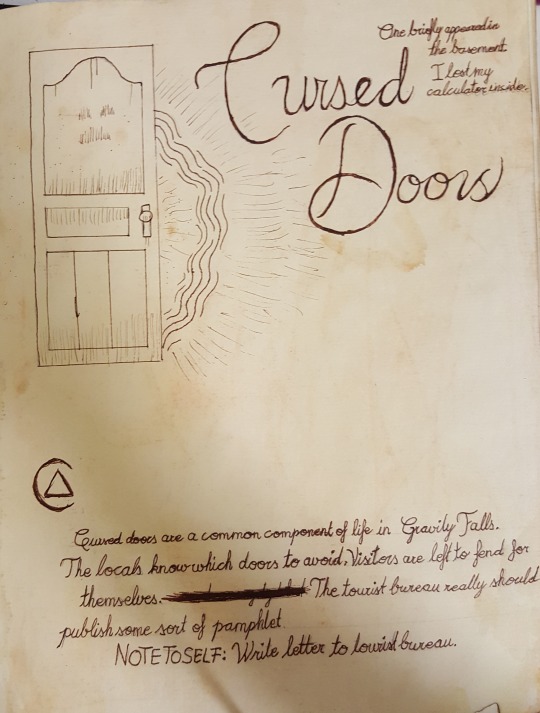 One briefly appeared in
the basement
I lost my
calculator inside.
Cursed
Doors
Cursed doors are a common component of life in Gravity Falls.
The locals know which doors to avoid. Visitors are left to fend for
themselves. The tourist bureau really should
publish some sort of pamphlet.
NOTE TO SELF: Write letter to tourist bureau.